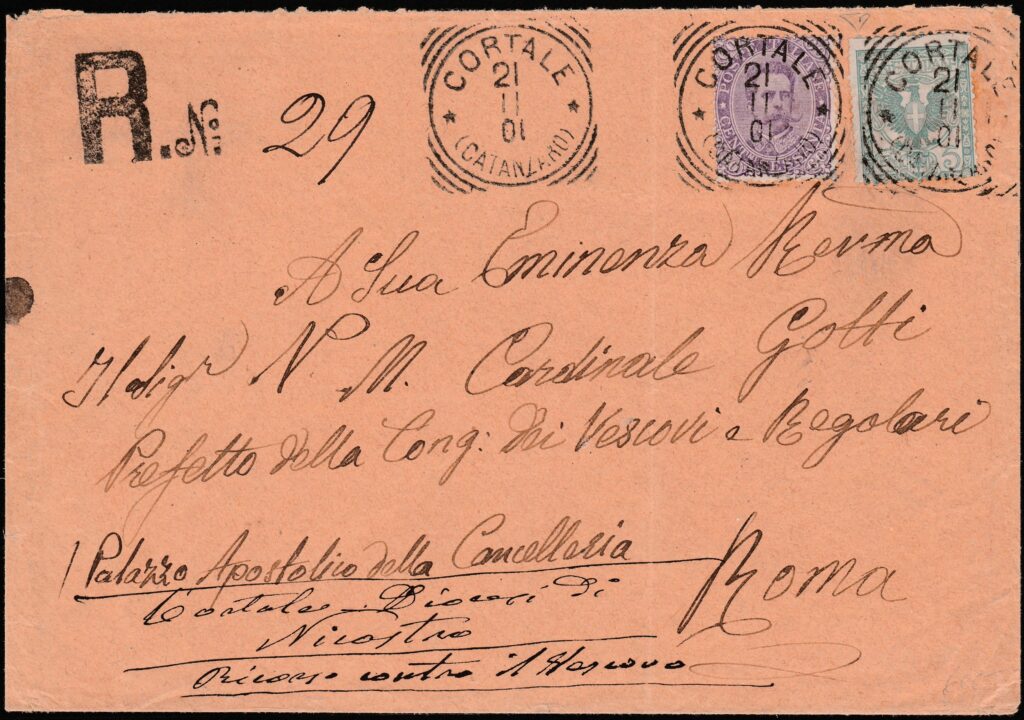 R. No 29
CORTALE
21
11
01
(CATANZARO)
CORTALE
21
11
01
CORTALE
21
11
01
A Sua Eminenza Revma
N M. Cardinale Gotti
Prefetto della Cong: dei Vescovi e Regolari
Palazzo Apostolico della Cancelleria
Roma
Cortale Diocesi di
Nicastro
Ricorso contro il Vescovo